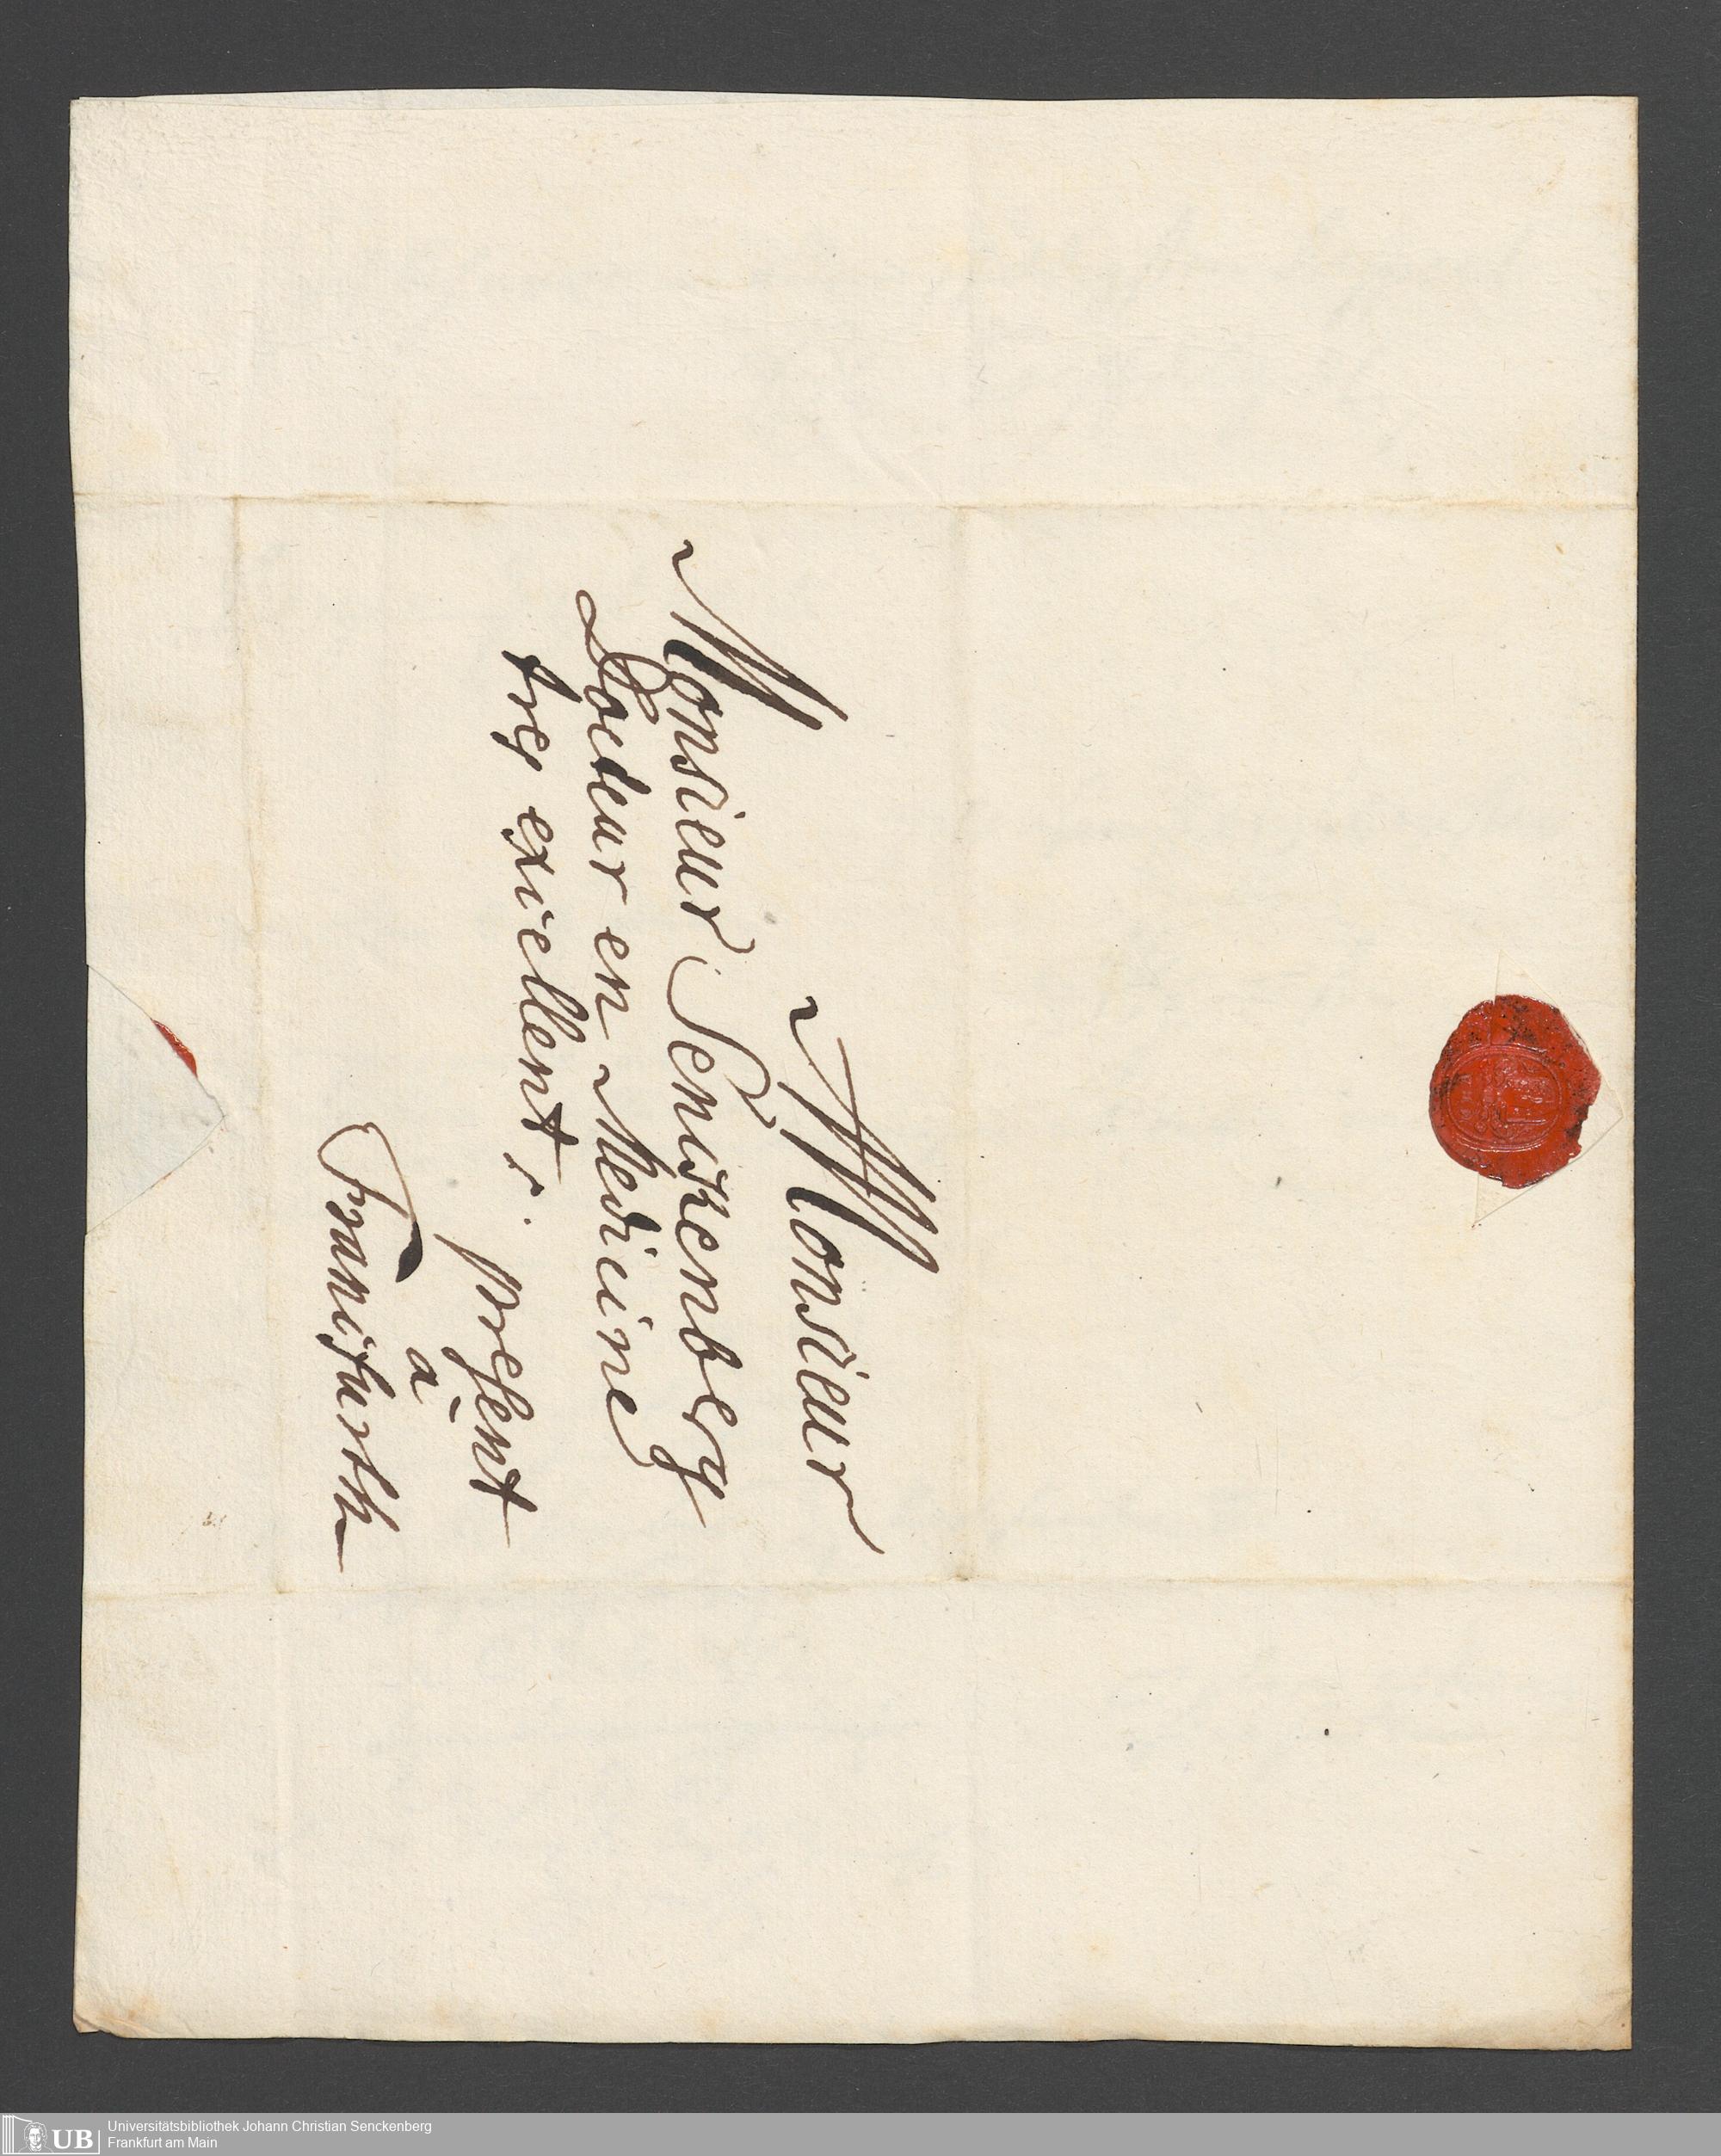 Monsieur
Monsieur Senckenberg
Docteur en Medicine
tres excellent,
present
à
Franckfurth
Universitätsbibliothek Johann Christian Senckenberg
Frankfurt am Main
UB